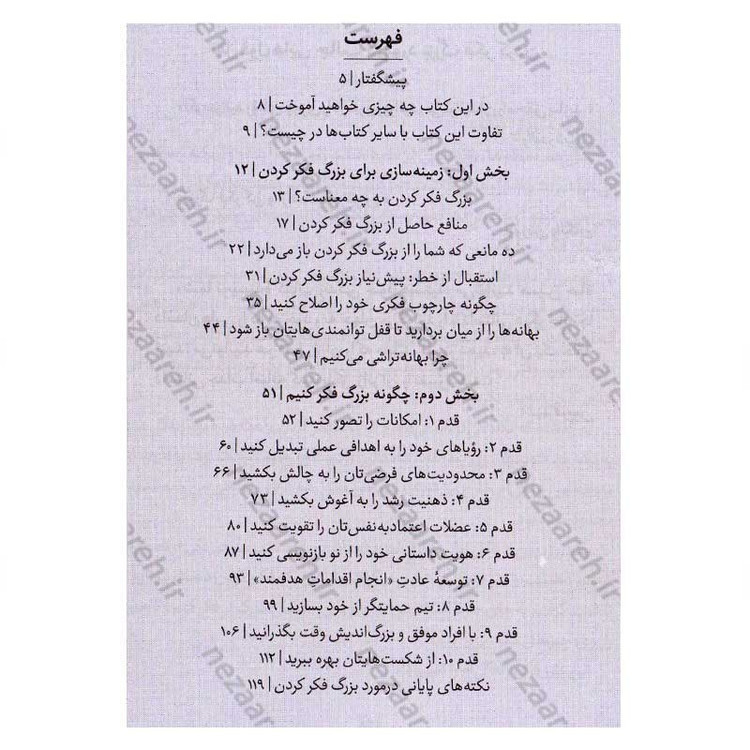 فهرست
پیشگفتار | ۵
در این کتاب چه چیزی خواهید آموخت | ۸
تفاوت این کتاب با سایر کتاب‌ها در چیست؟ | ۹
بخش اول: زمینه‌سازی برای بزرگ فکر کردن | ۱۲
بزرگ فکر کردن به چه معناست؟ | ۱۳
منافع حاصل از بزرگ فکر کردن | ۱۷
ده مانعی که شما را از بزرگ فکر کردن باز می‌دارد | ۲۲
استقبال از خطر: پیش‌نیاز بزرگ فکر کردن | ۳۱
چگونه چارچوب فکری خود را اصلاح کنید | ۳۵
بهانه‌ها را از میان بردارید تا قفل توانمندی‌هایتان باز شود | ۴۴
چرا بهانه‌تراشی می‌کنیم | ۴۷
بخش دوم: چگونه بزرگ فکر کنیم | ۵۱
قدم ۱: امکانات را تصور کنید | ۵۲
قدم ۲: رؤیاهای خود را به اهدافی عملی تبدیل کنید | ۶۰
قدم ۳: محدودیت‌های فرضی‌تان را به چالش بکشید | ۶۶
قدم ۴: ذهنیت رشد را به آغوش بکشید | ۷۳
قدم ۵: عضلات اعتمادبه‌نفس‌تان را تقویت کنید | ۸۰
قدم ۶: هویت داستانی خود را از نو بازنویسی کنید | ۸۷
قدم ۷: توسعهٔ عادتِ «انجام اقداماتِ هدفمند» | ۹۳
قدم ۸: تیم حمایتگر از خود بسازید | ۹۹
قدم ۹: با افراد موفق و بزرگ‌اندیش وقت بگذرانید | ۱۰۶
قدم ۱۰: از شکست‌هایتان بهره ببرید | ۱۱۲
نکته‌های پایانی درمورد بزرگ فکر کردن | ۱۱۹
nezaareh.ir